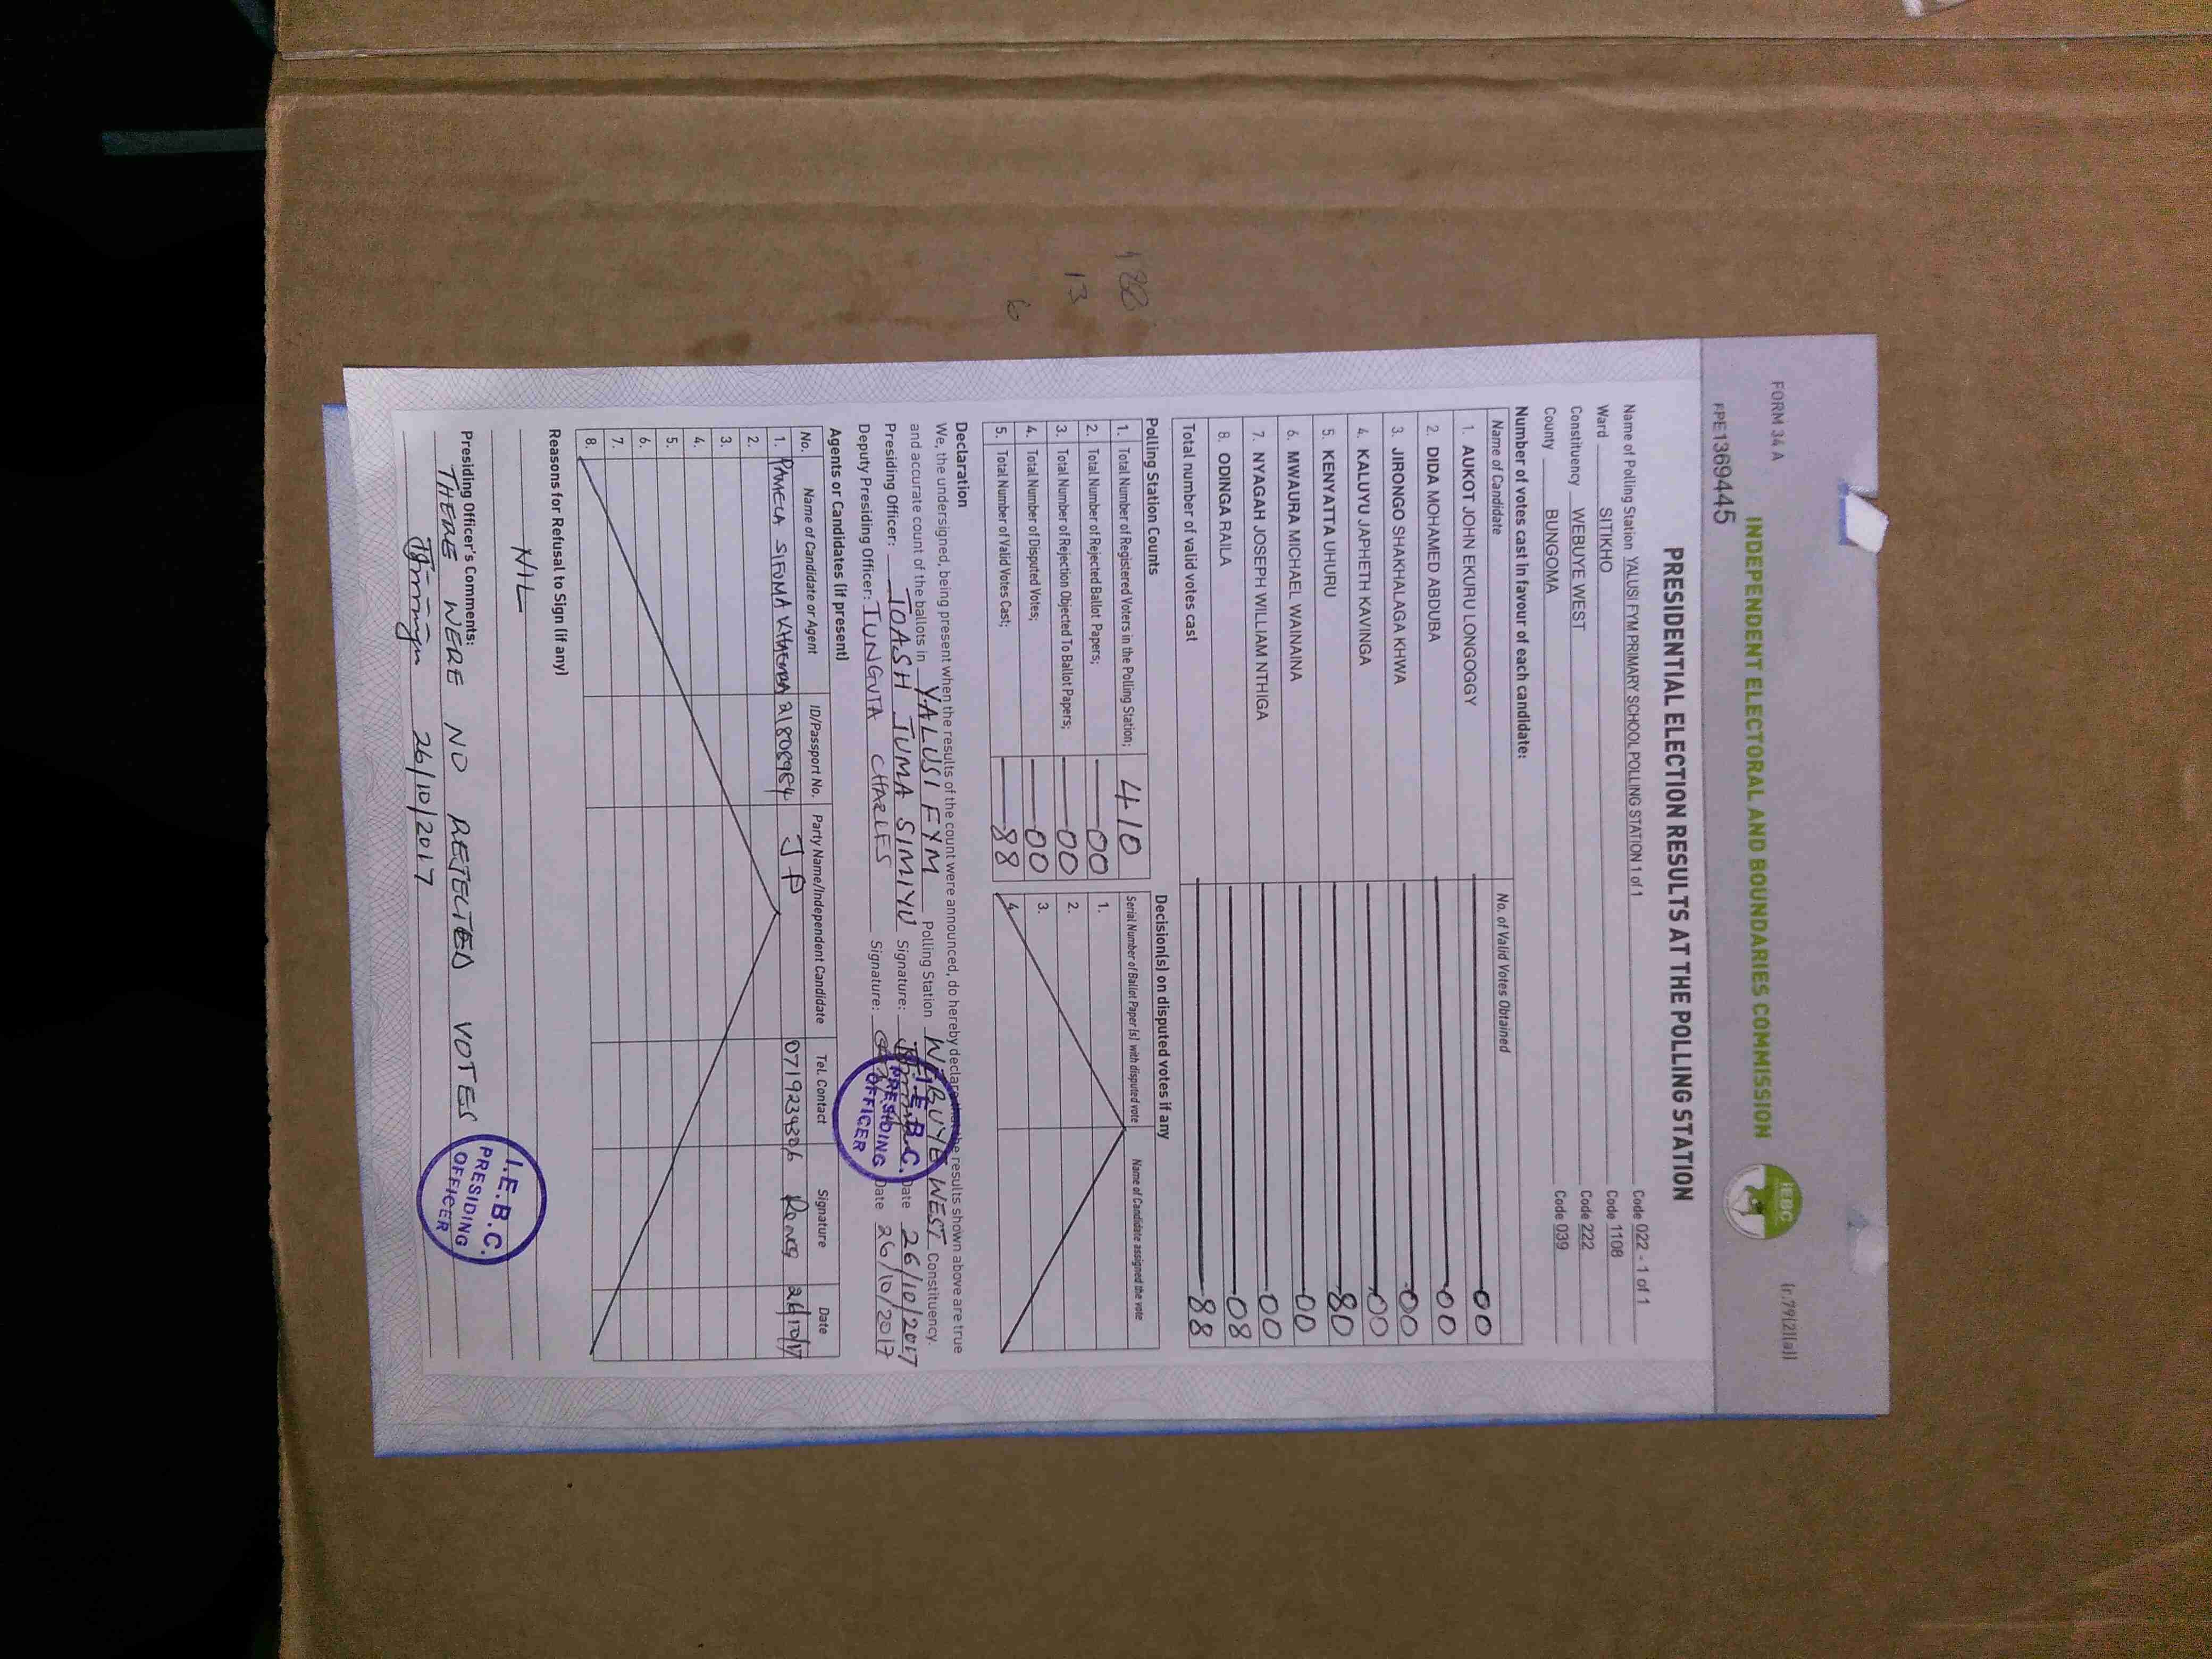 FORM 34 A
(r.79(2)(a))
INDEPENDENT ELECTORAL AND BOUNDARIES COMMISSION
IEBC
FPE1369445
PRESIDENTIAL ELECTION RESULTS AT THE POLLING STATION
Name of Polling Station YALUSI FYM PRIMARY SCHOOL POLLING STATION 1 of 1 Code 022 - 1 of 1
Ward SITIKHO Code 1108
Constituency WEBUYE WEST Code 222
County BUNGOMA Code 039
Number of votes cast in favour of each candidate:
Name of Candidate No. of Valid Votes Obtained
1. AUKOT JOHN EKURU LONGOGGY 00
2. DIDA MOHAMED ABDUBA 00
3. JIRONGO SHAKHALAGA KHWA 00
4. KALUYU JAPHETH KAVINGA 00
5. KENYATTA UHURU 80
6. MWAURA MICHAEL WAINAINA 00
7. NYAGAH JOSEPH WILLIAM NTHIGA 00
8. ODINGA RAILA 08
Total number of valid votes cast 88
Polling Station Counts
1. Total Number of Registered Voters in the Polling Station; 410
2. Total Number of Rejected Ballot Papers; 00
3. Total Number of Rejection Objected To Ballot Papers; 00
4. Total Number of Disputed Votes; 00
5. Total Number of Valid Votes Cast; 88
Decision(s) on disputed votes if any
Serial Number of Ballot Paper (s) with disputed vote Name of Candidate assigned the vote
1.
2.
3.
4.
Declaration
We, the undersigned, being present when the results of the count were announced, do hereby declare that the results shown above are true
and accurate count of the ballots in YALUSI FYM Polling Station WEBUYE WEST Constituency.
Presiding Officer: TOASH JUMA SIMIYU Signature: Date 26/10/2017
Deputy Presiding Officer: JUNGUTA CHARLES Signature: Date 26/10/2017
I.E.B.C.
PRESIDING
OFFICER
Agents or Candidates (if present)
No. Name of Candidate or Agent ID/Passport No. Party Name/Independent Candidate Tel. Contact Signature Date
1. PAMELA SIFUMA KHAEMBA 21808954 JP 0719239306 26/10/17
2.
3.
4.
5.
6.
7.
8.
Reasons for Refusal to Sign (if any)
NIL
Presiding Officer's Comments:
THERE WERE NO REJECTED VOTES
26/10/2017
I.E.B.C.
PRESIDING
OFFICER
13
6